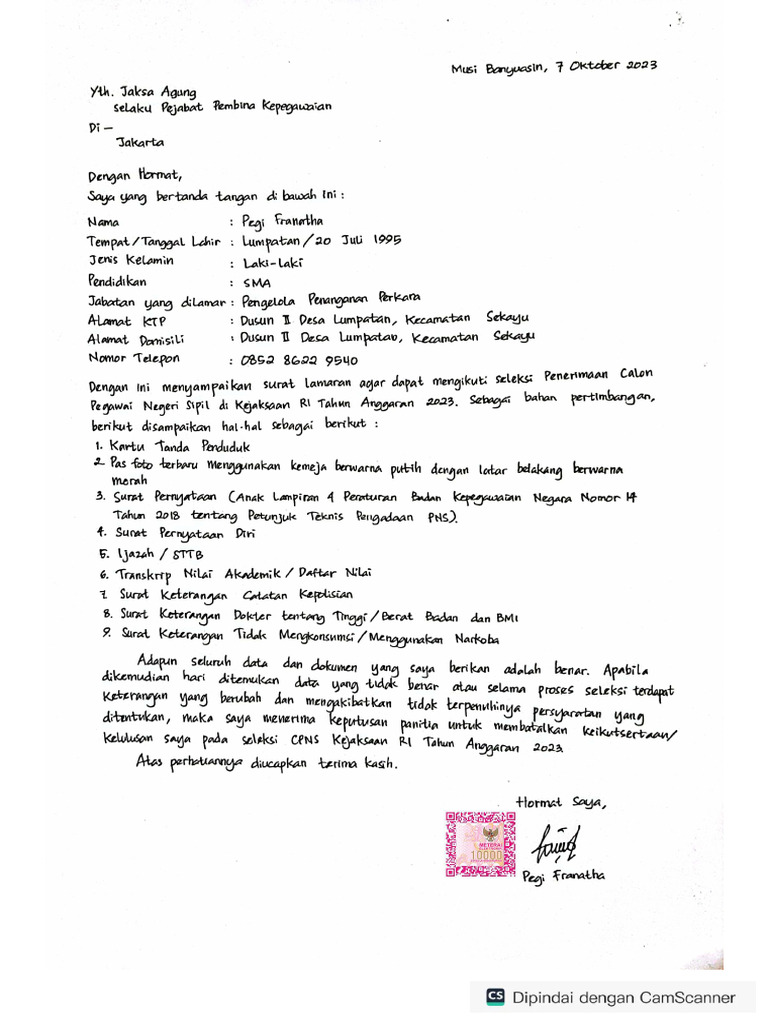 Musi Banyuasin, 7 Oktober 2023
Yth. Jaksa Agung
Selaku Pejabat Pembina Kepegawaian
Di –
Jakarta
Dengan Hormat,
Saya yang bertanda tangan di bawah ini :
Nama : Pegi Franatha
Tempat/Tanggal Lahir : Lumpatan/20 Juli 1995
Jenis Kelamin : Laki-laki
Pendidikan : SMA
Jabatan yang dilamar : Pengelola Penanganan Perkara
Alamat KTP : Dusun II Desa Lumpatan, Kecamatan Sekayu
Alamat Domisili : Dusun II Desa Lumpatan, Kecamatan Sekayu
Nomor Telepon : 0852 8622 9540
Dengan ini menyampaikan surat lamaran agar dapat mengikuti seleksi Penerimaan Calon
Pegawai Negeri Sipil di Kejaksaan RI Tahun Anggaran 2023. Sebagai bahan pertimbangan,
berikut disampaikan hal-hal sebagai berikut :
1. Kartu Tanda Penduduk
2. Pas foto terbaru menggunakan kemeja berwarna putih dengan latar belakang berwarna
merah
3. Surat Pernyataan (Anak Lampiran 4 Peraturan Badan Kepegawaian Negara Nomor 14
Tahun 2018 tentang Petunjuk Teknis Pengadaan PNS).
4. Surat Pernyataan Diri
5. Ijazah / STTB
6. Transkrip Nilai Akademik / Daftar Nilai
7. Surat Keterangan Catatan Kepolisian
8. Surat Keterangan Dokter tentang Tinggi/Berat Badan dan BMI
9. Surat Keterangan Tidak Mengkonsumsi/Menggunakan Narkoba
Adapun seluruh data dan dokumen yang saya berikan adalah benar. Apabila
dikemudian hari ditemukan data yang tidak benar atau selama proses seleksi terdapat
keterangan yang berubah dan mengakibatkan tidak terpenuhinya persyaratan yang
ditentukan, maka saya menerima keputusan panitia untuk membatalkan keikutsertaan/
kelulusan saya pada seleksi CPNS Kejaksaan RI Tahun Anggaran 2023.
Atas perhatiannya diucapkan terima kasih.
Hormat Saya,
METERAI
10000
Pegi Franatha
CS Dipindai dengan CamScanner